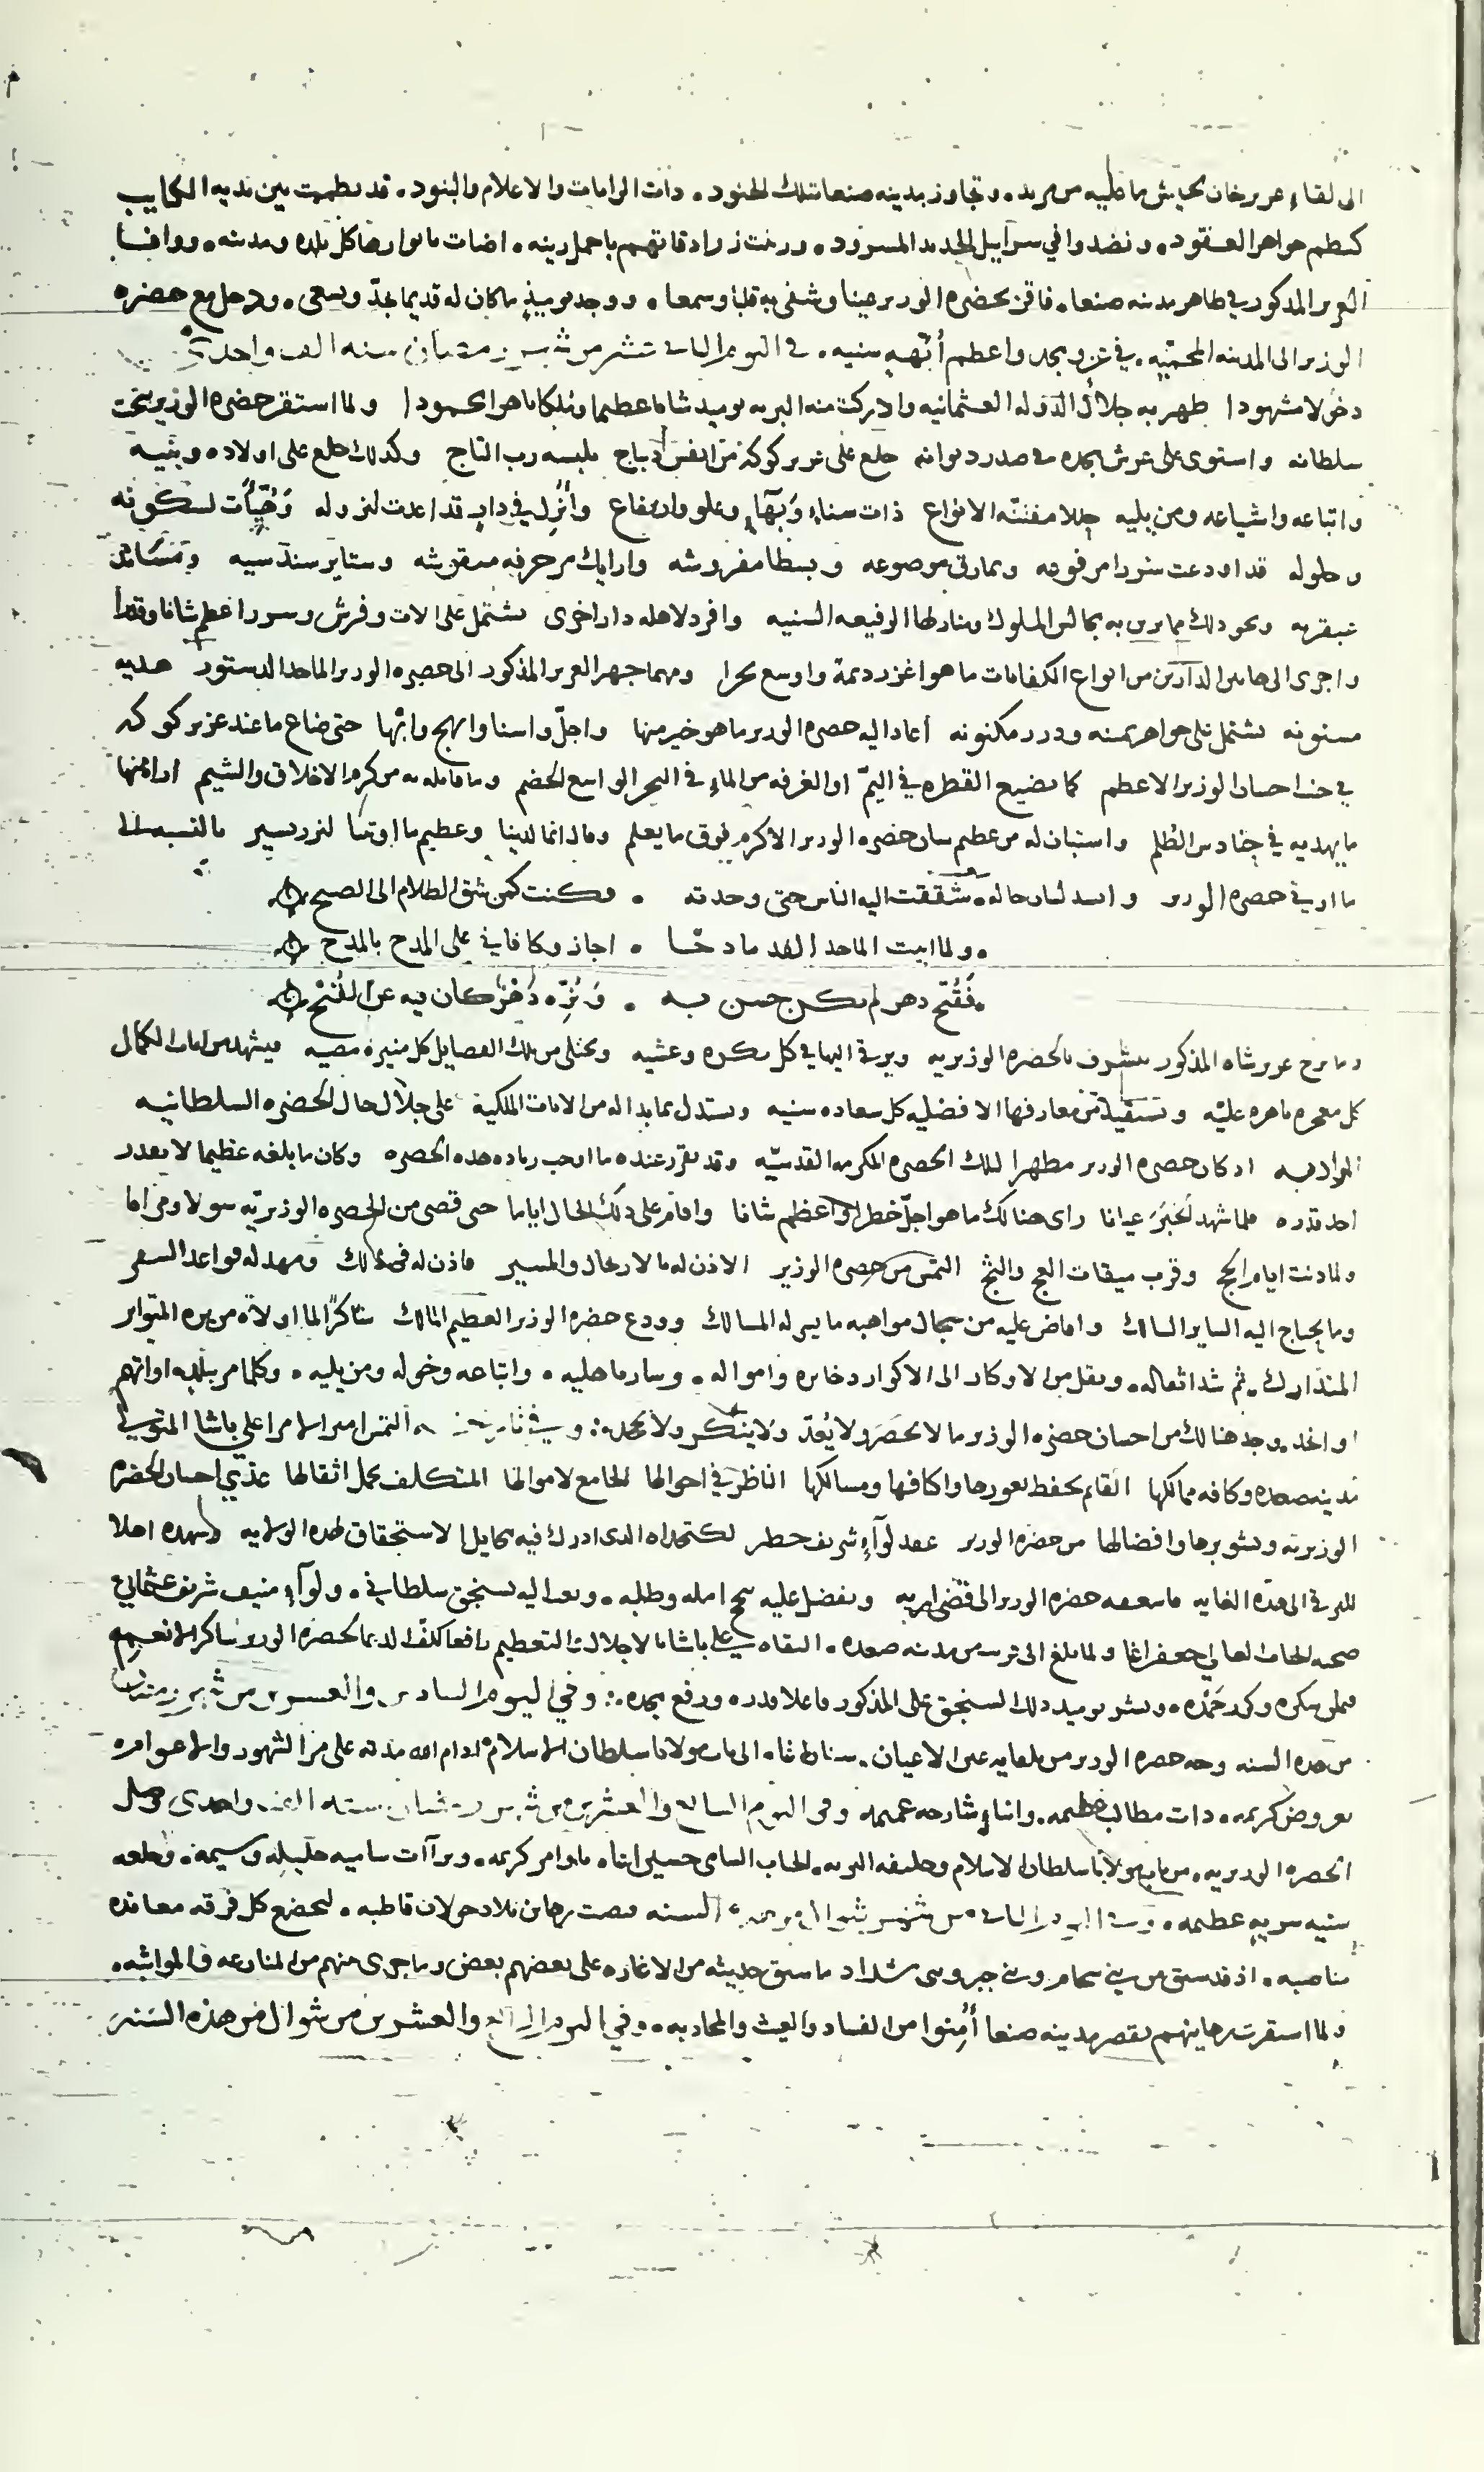 الى لقاء عزيز خان بجيش ما عليه من مزيد. وتجاوز مدينه صنعا تلك الجنود. ذات الرايات والاعلام والبنود. قد نظمت بين يديه الكتايب
كنظم جواهر العقود. ونضدوا في سرابيل الحديد المسرود. وزينت زرادقاتهم باجمل زينه. اضات بانوارها كل بلده ومدينه. ووافا
العزيز المذكور في ظاهر مدينه صنعا. فاقر بحضره الوزير عينا وشفى به قلبا وسمعا. ووجد يوميذ ما كان له قديما يجد ويسعى. ودخل مع حضره
الوزير الى المدينه المحميه. في عز ومجد واعظم أبهه سنيه. في اليوم عشر من شهر رمضان سنه الف واحدى
دخولا مشهودا ظهر به جلال الدوله العثمانيه وادركت منه البريه يوميد شانا عظيما وملكا باهرا محمودا ولما استقر حضره الوزير بتخت
سلطانه واستوى على عرش مجده في صدر ديوانه خلع على عزيز كوكه من انفس ديباج ملبسه رب التاج وكذلك خلع على اولاده وبنيه
واتباعه واشياعه ومن يليه حللا مفننه الانواع ذات سناء وبهاء وعلو وارتفاع وأنزل في دار قد اعدت لنزوله وهيأت لسكونه
وحلوله قد اودعت سررا مرفوعه ونمارق موضوعه وبسطا مفروشه وارايك مزخرفه منقوشه وستاير سندسيه
عبقريه ونحو ذلك مما يزين به مجالس الملوك ومنازلها الرفيعه السنيه وافرد لاهله دارا اخرى تشتمل على الات وفرش وسررا اعظم شانا وقدرا
واجرى الى هاتين الدارين من انواع الكفايات ما هو اغزر ديمة واوسع بحرا ومهما جهز العزيز المذكور الى حضره الوزير الماجد الدستور هديه
مسنونه تشتمل على جواهر ثمينه ودرر مكنونه أعاد اليه حضره الوزير ما هو خير منها واجل واسنا وابهج وابها حتى ضاع ما عند عزيز كوكه
في جنب احسان الوزير الاعظم كما تضيع القطره في اليم او الغرفه من الماء في البحر الواسع الخضم وما قابله به من كرم الاخلاق والشيم اراه منها
ما يهديه في حنادس الظلم واستبان له من عظيم شان حضره الوزير الاكرم فوق ما يعلم وقال انما لدينا وعظيم ما اوتينا لنزر يسير بالنسبه الى
ما اوتي حضره الوزير وانشد لسان حاله. شققت اليه الناس حتى وجدته . فكنت كمن شق الظلام الى الصبح
. ولما اتيت الماجد مادحا . اجاز وكافاني على المدح بالمدح
. فقبح دهر لم يكن حسن به . ونزه دهر كان فيه عن القبح
وما برح عزيز شاه المذكور يتشرف بالحضره الوزيريه ويرقى اليها في كل بكره وعشيه ويجتلى من تلك الفضايل كل منيره مضيه فيشهد من ايات الكمال
كل معجزه باهره عليه ويستفيد من معارفها الافضليه كل سعاده سنيه ويستدل بما بدا له من الايات الملكية على جلال حال الحضره السلطانيه
المراديه اذ كان حضره الوزير مظهرا لتلك الحضره المكرمه القدسيه وقد تقرر عنده ما اوجب زياده هذه الحضره وكان ما بلغه عظيما لا يقدر
احد قدره فلما شهد الخبر عيانا راى هنالك ما هو اجل خطرا واعظم شانا واقام على ذلك الحال اياما حتى قضى من الحضره الوزيريه سولا ومراما
ولما دنت ايام الحج وقرب ميقات العج والثج التمس من حضره الوزير الاذن له بالارتحال والمسير فاذن له في ذلك ومهد له قواعد السفر
وما يحتاج اليه الساير السالك وافاض عليه من سجال مواهبه ما يسر له المسالك وودع حضره الوزير العظيم المالك شاكرا لما اولاه من بره المتواتر
المتدارك. ثم شد اثقاله. ونقل من الاوكار الى الاكوار ذخايره وامواله. وسار باهليه. واتباعه وخوله ومن يليه. وكلما مر ببلده او اتهم
او انجد. وجد هنالك من احسان حضره الوزير ما لا يحصر ولا يعد ولا ينكر ولا يجحد. وفي التمس امير الامرا علي باشا المتولي
مدينه صعده وكافه ممالكها القايم بحفظ ثغورها واكنافها ومسالكها الناظر في احوالها الجامع لاموالها المتكلف بحمل اثقالها غذي احسان الحضره
الوزيريه وافضالها من حضره الوزير عقد لواء شريف خطير لكتخداه الذي ادرك فيه مخايل الاستحقاق لهذه الولايه اهلا
للترقي الى هذه الغايه فاسعفه حضره الوزير الى اربه وتفضل عليه امله وطلبه. وبعث اليه بسنجق سلطاني. ولواء منيف شريف عثماني
صحبه الجناب العالي جعفر اغا ولما بلغ الى قرب من مدينه صعده. التقاه علي باشا بالاجلال والتعظيم رافعا كف الدعا لحضره الوزير شاكرا
شكره وكرر حمده. ونشر يوميد ذلك السنجق على المذكور فاعلا قدره ورفع مجده. وفي اليوم السادس والعشرين من شهر رمضان
من هذه السنه وجه حضره الوزير من تلقايه عين الاعيان. الى باب مولانا سلطان الاسلام ادام الله مدته على مر الشهور والاعوام
بعروض كريمه. ذات مطالب عظيمه. وانباء شارحه عميمه وفي اليوم السابع والعشرين من شهر رمضان سنه الف واحدى وصل
الحضره الوزيريه. من باب مولانا سلطان الاسلام وخليفه البريه. الجناب السامي حسين اغا. باوامر كريمه. وبراآت ساميه جليله وسيمه. وخلعه
سنيه سريه عظيمه. وفي اليوم من شهر شوال من هذه السنه قبضت رهاين بلاد خولان قاطبه. لتخضع كل فرقه معانده
مناصبه. اذ قد سبق من بني سحام وبني جبر وبني شداد ما سبق حديثه من الاغاره على بعضهم بعض وما جرى منهم من المنازعه والمواثبه.
ولما استقرت رهاينهم بقصر مدينه صنعا أمنوا من الفساد والعبث والمحاربه. وفي اليوم الرابع والعشرين من شوال من هذه السنه